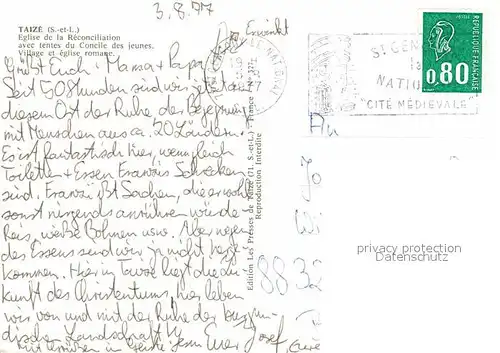 3.8.77
TAIZÉ (S.-et-L.)
Eglise de la Réconciliation
avec tentes du Concile des jeunes.
Village et église romane.
Grüßt Euch, Mama + Papa!
Seit 50 Stunden sind wir jetzt an
diesem Ort der Ruhe der Begegnung
mit Menschen aus ca. 20 Ländern.
Es ist fantastisch hier, wenngleich
Toiletten + Essen Schrecken
sind. ißt Sachen, die er wohl
sonst nirgends anrühren würde
Reis, weiße Bohnen usw. Aber wegen
des Essens sind wir ja nicht herge-
kommen. Hier in Taizé liegt die Zu-
kunft des Christentums, hier leben
wir von und mit der Ruhe der burgun-
dischen Landschaft.
Euer Josef
Edition Les Presses de Taizé (71. S.-et-L.) - France N° 271
Reproduction Interdite
ST GEN
NATIO
"CITÉ MÉDIÉVALE"
0,80
REPUBLIQUE FRANÇAISE
An
883
privacy protection
Datenschutz